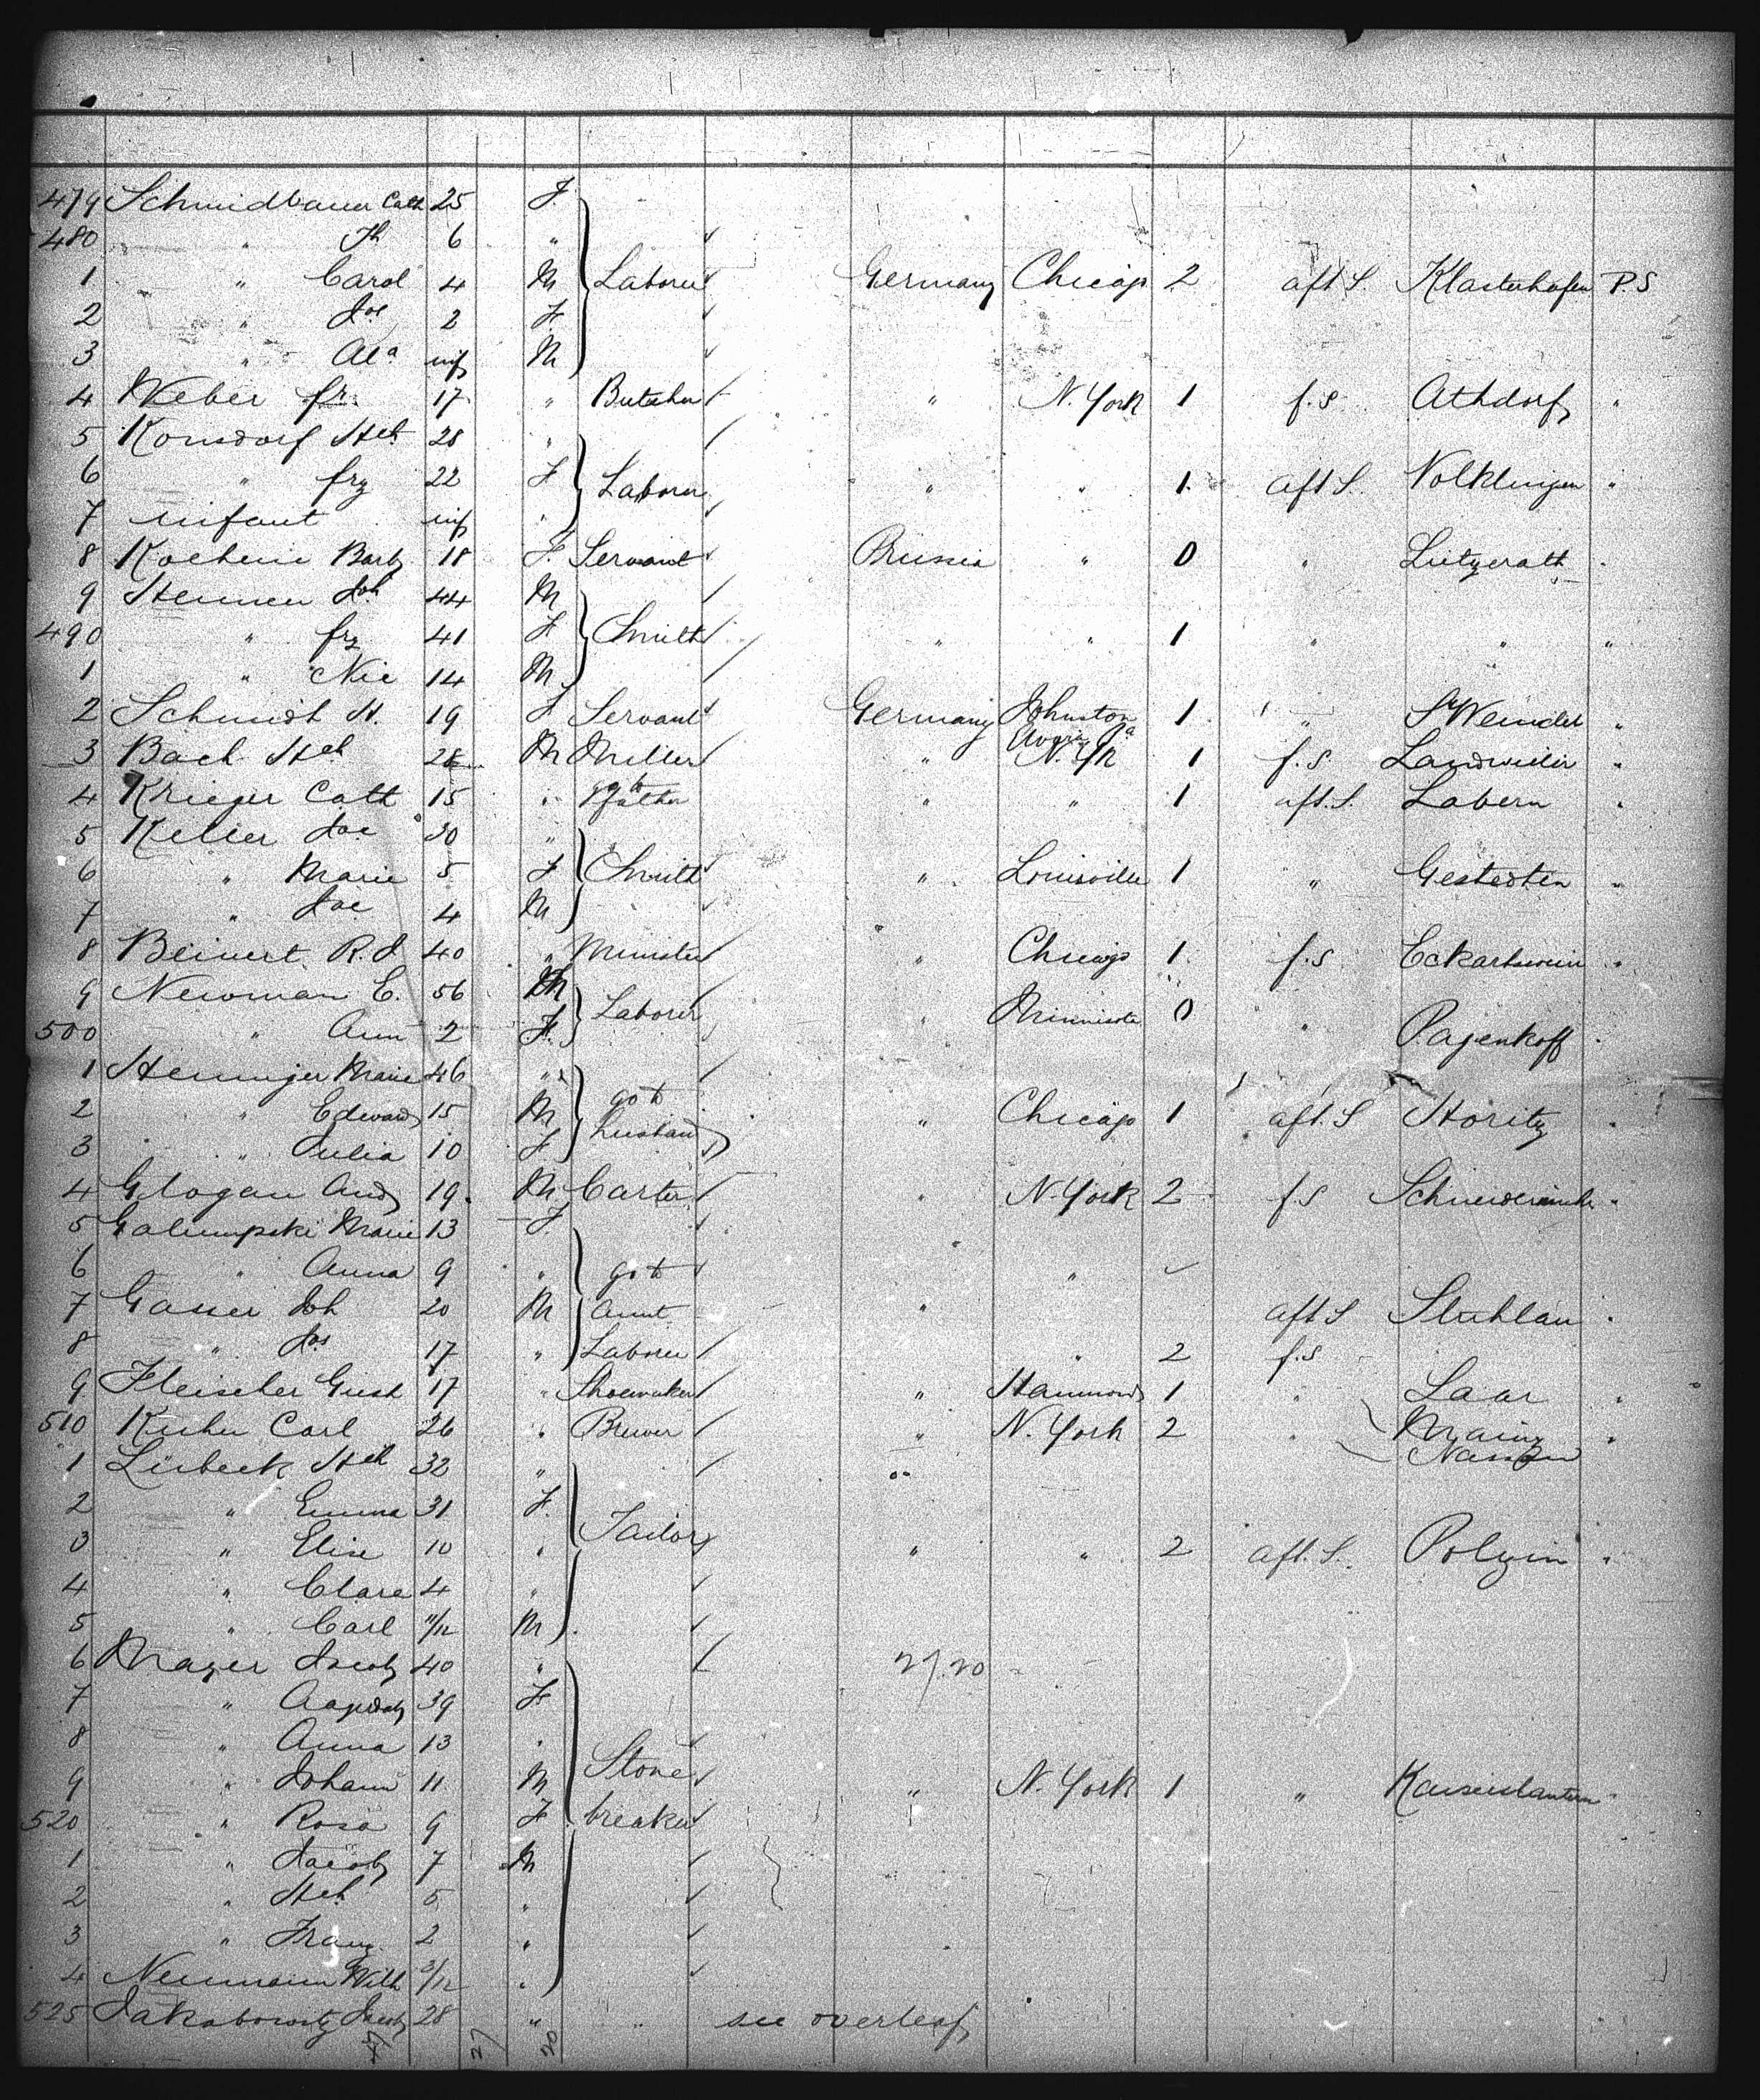 479 Schmidbauer Cath 25 F.
480 " Th 6 "
1 " Carol 4 M Laborer Germany Chicago 2 aft S. Klosterhofen P.S
2 " Jos 2 F.
3 " Al^a inf M
4 Weber fr. 17 " Butcher " N. York 1 f.s. Athdorf "
5 Konsdorf Hch 28 "
6 " frz 22 F Laborer " " 1. aft S. Volklingen "
7 infant inf "
8 Kochem Barb 18 F. Servant Prussia " 0 " Lutzerath "
9 Hennen Joh 44 M
490 " frz 41 F Smith " " 1 " " "
1 " Nic 14 M.
2 Schmidt H. 19 F Servant Germany Johnston 1 " St Wendel "
Evoria Pa
3 Bach Hch 28 M Miller " N. Yk 1 f.s. Landweiler "
4 Krieger Cath 15 " go to father " " 1 aft. S. Labern "
5 Keller Joe 30 "
6 " Marie 5 F Smith " Louisville 1 " Gestedten "
7 " Joe 4 M
8 Beinert R. J. 40 " Minister " Chicago 1. f.s. Eckartswein "
9 Newman E. 56 M Laborer " Minnisota 0 "
500 " Ann 2 F. Pagenkoff "
1 Henninger Marie 46 "
2 " Edward 15 M go to husband " Chicago 1 aft. S Horitz "
3 " Julia 10 F
4 Glogau And 19. M Carter " N. York 2 f.s
5 Galumpski Marie 13 F.
6 " Anna 9 " go to "
7 Gasser Joh 20 M Aunt " aft S Stuhlau "
8 " Jos 17 " Laborer " 2 f.s
9 Fleischer Gust 17 " Shoemaker " Hammond 1 " Laar "
510 Kuhn Carl 26 " Brewer " N. York 2 " Mainz "
Nassau
1 Lübeck Hch 32 " "
2 " Emma 31 F.
3 " Elise 10 " Tailor " " 2 aft. S. Polzin "
4 " Clara 4 "
5 " Carl 11/12 M
6 Mayer Jacob 40 " 27.20
7 " 39 F
8 " Anna 13 "
9 " Johann 11 M Stone " N. York 1 " Kaiserslautern "
520 " Rosa 9 F. breaker
1 " Jacob 7 M
2 " Hch 5 "
3 " Franz 2 "
4 Neumann Wilh 3/12 "
525 Jakobowitz Jacob 28 " " see overleaf
27 20